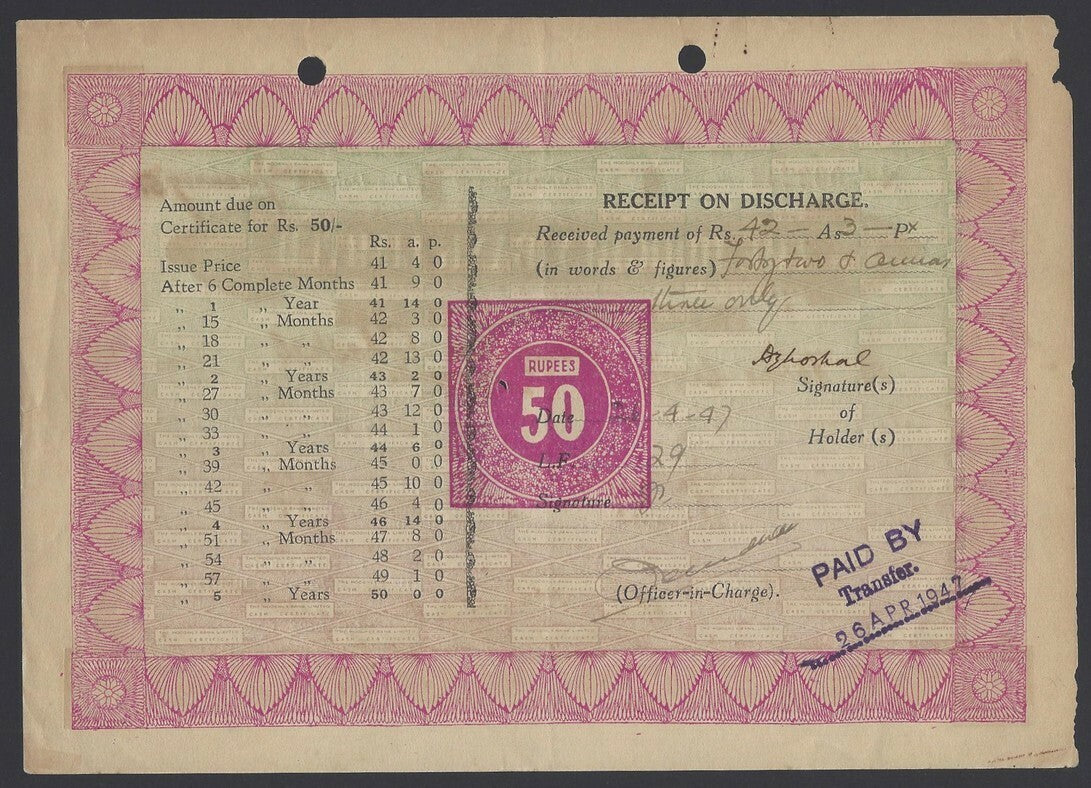 Amount due on
Certificate for Rs. 50/-
Rs. a. p.
Issue Price 41 4 0
After 6 Complete Months 41 9 0
„ 1 „ Year 41 14 0
„ 15 „ Months 42 3 0
„ 18 „ „ 42 8 0
„ 21 „ „ 42 13 0
„ 2 „ Years 43 2 0
„ 27 „ Months 43 7 0
„ 30 „ „ 43 12 0
„ 33 „ „ 44 1 0
„ 3 „ Years 44 6 0
„ 39 „ Months 45 0 0
„ 42 „ „ 45 10 0
„ 45 „ „ 46 4 0
„ 4 „ Years 46 14 0
„ 51 „ Months 47 8 0
„ 54 „ „ 48 2 0
„ 57 „ „ 49 1 0
„ 5 „ Years 50 0 0
RUPEES
50
RECEIPT ON DISCHARGE.
Received payment of Rs. 42 — As 3 — P x
(in words & figures) Forty two & annas
three only
Signature(s)
of
Holder (s)
Date -4-47
L.F. 29
Signature
(Officer-in-Charge).
PAID BY
Transfer.
26 APR 1947
THE HOOGHLY BANK LIMITED
CASH CERTIFICATE